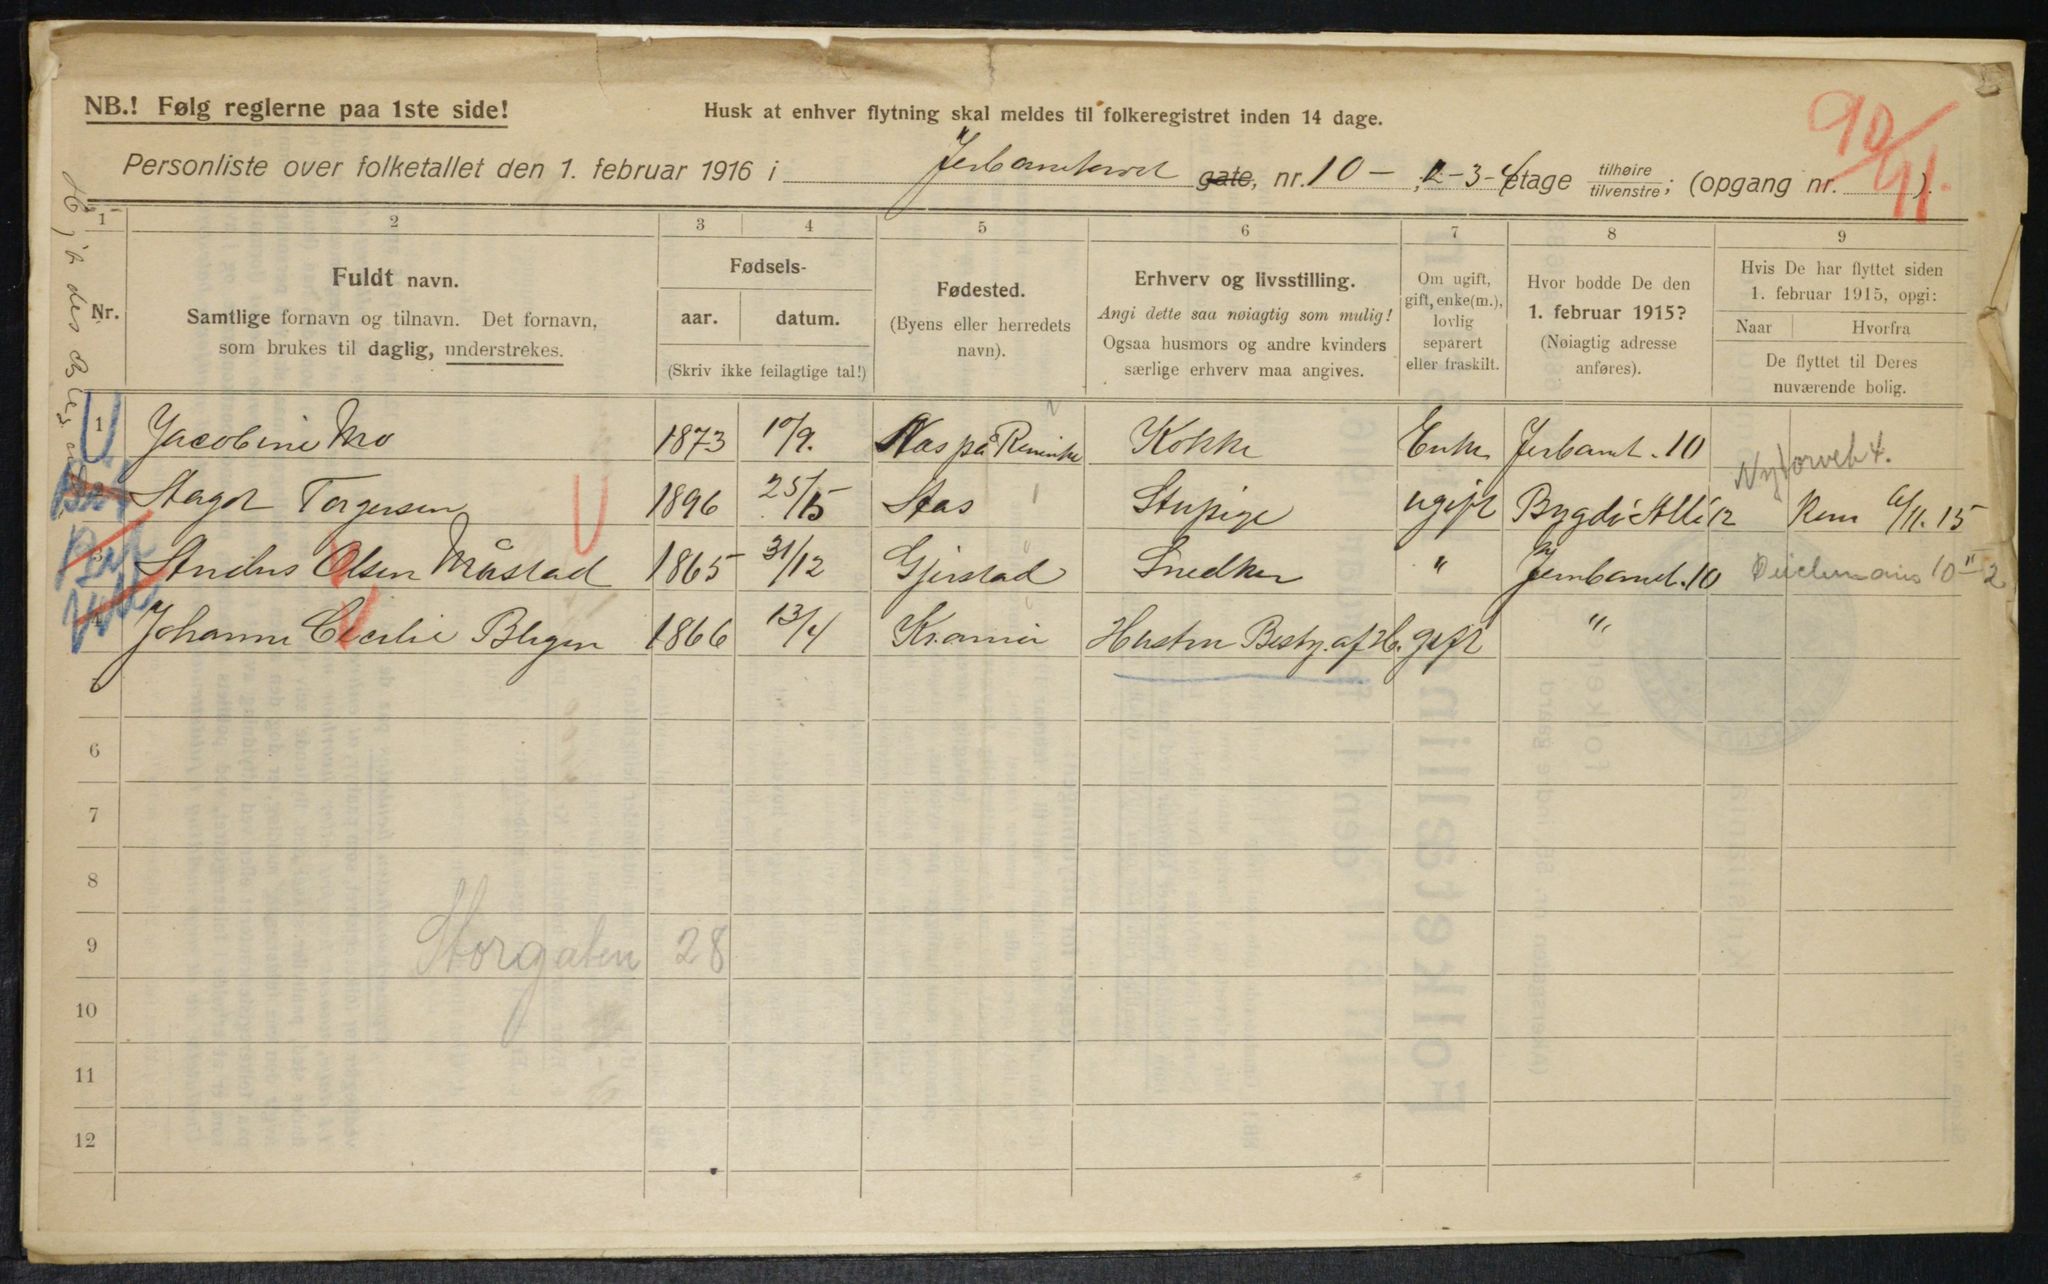 NB.! Følg reglerne paa 1ste side!
Husk at enhver flytning skal meldes til folkeregistret inden 14 dage.
90/91.
Personliste over folketallet den 1. februar 1916 i Jerbanetorvet gate, nr. 10 - , 2-3-4 etage tilhøire/tilvenstre; (opgang nr. ).
1 2 3 4 5 6 7 8 9
Nr.
Fuldt navn.
Samtlige fornavn og tilnavn. Det fornavn,
som brukes til daglig, understrekes.
Fødsels-
aar. datum.
(Skriv ikke feilagtige tal!)
Fødested.
(Byens eller herredets
navn).
Erhverv og livsstilling.
Angi dette saa nøiagtig som mulig!
Ogsaa husmors og andre kvinders
særlige erhverv maa angives.
Om ugift,
gift, enke(m.),
lovlig
separert
eller fraskilt.
Hvor bodde De den
1. februar 1915?
(Nøiagtig adresse
anføres).
Hvis De har flyttet siden
1. februar 1915, opgi:
Naar Hvorfra
De flyttet til Deres
nuværende bolig.
1 Jacobine Mo 1873 10/9. Nas på Kokke Enke Jerbant. 10
Nytorvet 4.
2 Torgersen 1896 25/15 Aas ugift Bygdö Allé 12 11.15
3 Olsen Måstad 1865 31/12 Gjerstad Snedker " Jernbanet. 10 Deichmans 10 - 2
4 Johanne Cecilie 1866 13/4 Kr.ania Hustru Besty. af H. gift "
5
6
7
8
9 Storgaten 28
10
11
12